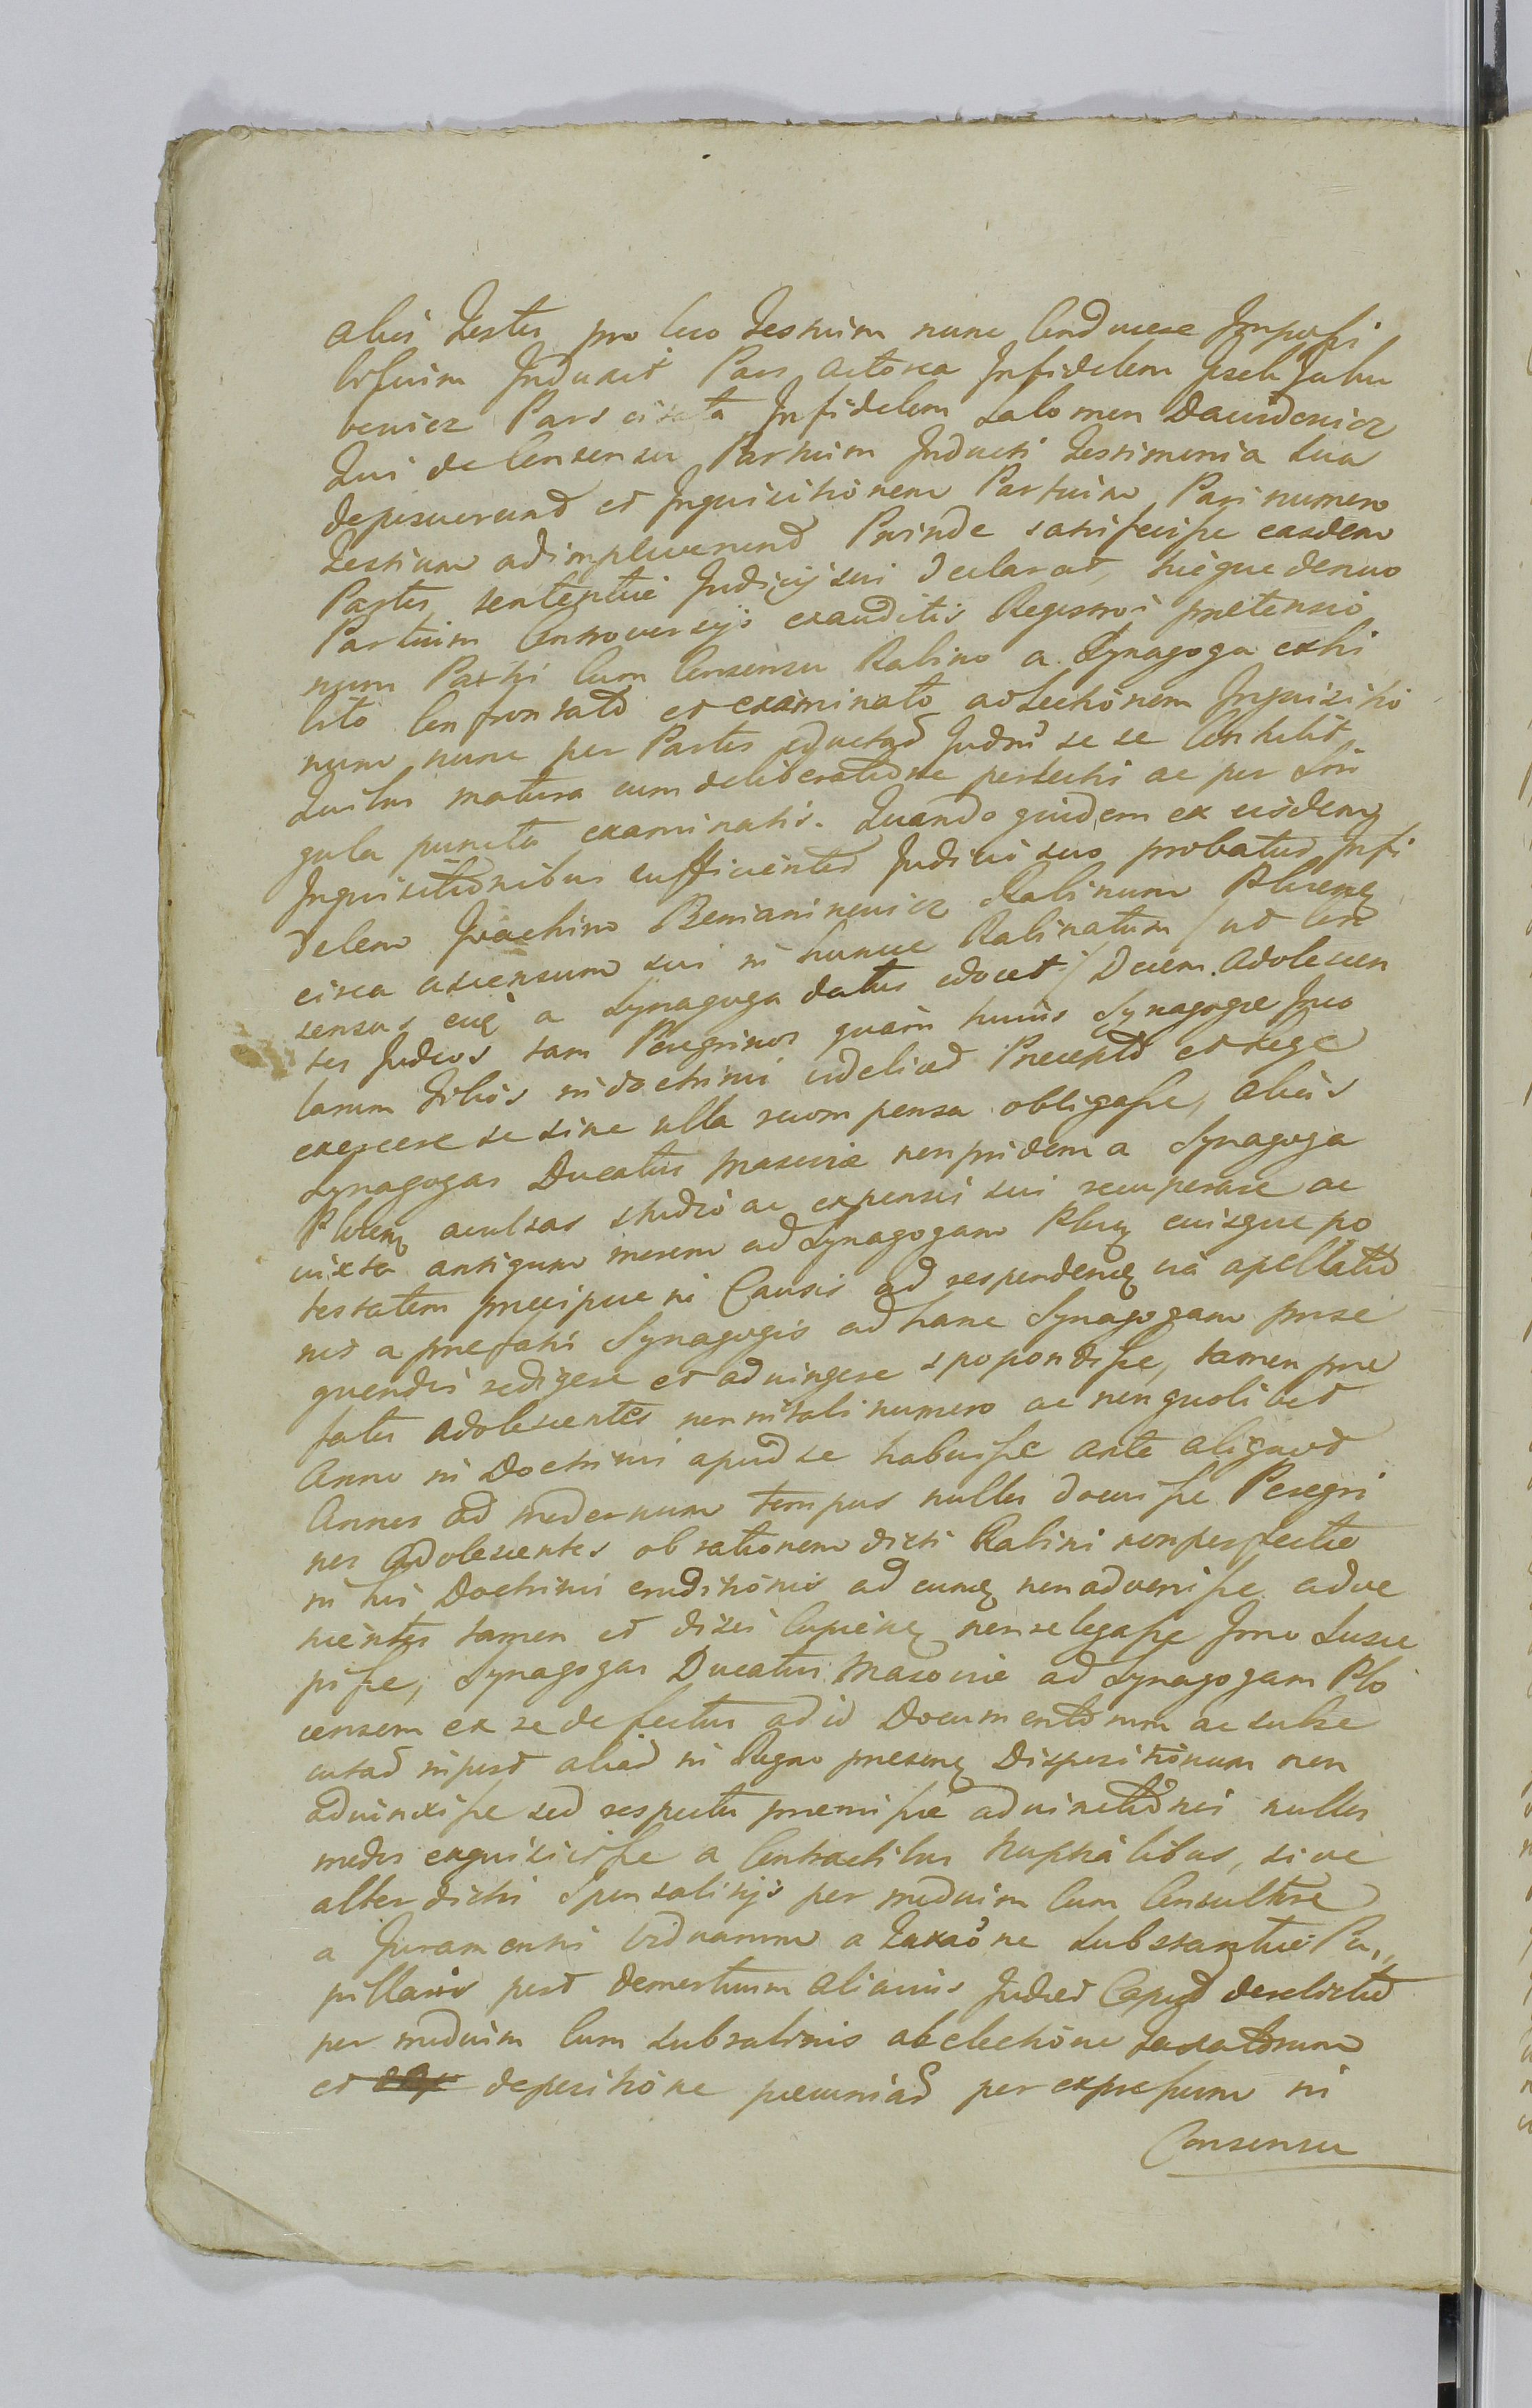 alios Testes pro loco Testium nunc Conducere Impossi
bilium Induxit Pars actorea Infidelem Josek Jaku
bowicz Pars citata Infidelem Salomon Dawidowicz
Qui de Consensu Partium Inducti Testimonia sua
deposuerunt et Inquisitionem Partium Pari numero
Testium adimpleverunt Proinde satisfecisse easdem
Partes sententiæ Judicij sui declarat, hicque denuo
Partium Controversijs exauditis Regestroq pretensio
num Parti Cum Consensu Rabino a Synagoga exhi
bito Confrontato et examinato ad Lectionem Inquisitio
num nunc per Partes eductad Judm se se Contulit
Quibus matura cum deliberatione perlectis ac per Sin
gula puncta examinatis. Quando quidem ex eisdem
Inquisitionibus sufficienter Judicio suo probatur Infi
delem Joachim Beniaminowicz Rabinum Plocens
circa ascensum sui in hunce Rabinatum /ut Con
sensus eiq a Synagoga datus edocet/ Decem adolescen
tes Judeos tam Peregrinos quam huius Synagogæ Inco
larum Filios in doctrina videlicet Precepto et Lege
exercere se sine ulla recompensa obligasse, aliis
Synagogas Ducatus Masoviæ non pridem a Synagoga
Plocens avulsas studio ac expensis sui recuperare ac
iuxta antiquum morem ad Synagogam Ploc eiusque po
testatem precipue in Causis ad respondens via apellatio
nis a prefatis Synagogis ad hanc Synagogam prose
quendis redigere et advingere spopondisse, tamen pre
fatos adolescentes non in tali numero ac non quolibet
Anno in Doctrina apud se habuisse ante aliquot
Annos ad modernum tempus nullos docuisse Peregri
nos adolescentes ob rationem dicti Rabini non perfectæ
in his Doctrinis eruditionis ad eumq non advenisse adve
nientes tamen et disci Cupiens non relegasse Imo Susce
pisse, Synagogas Ducatus Masoviæ ad Synagogam Plo
censem ex se defectus ad id Documentorum ac subse
cutad in post aliad in Regno presens Dispositionum non
advinxisse sed respectu premissæ advinctionis nullos
modos exquisivisse a Contractibus Nuptialibus, sive
alter dictis Sponsalitijs per medium Cum Consultore
a Juramentis viduarum a Taxaõne substantiæ Pu„
pillaris post demortuum alicuius Judei Caput derelictad
per medium Cum subrabinis ab electione taxatorum
et depositione pecuniad per expressum in
Consensu